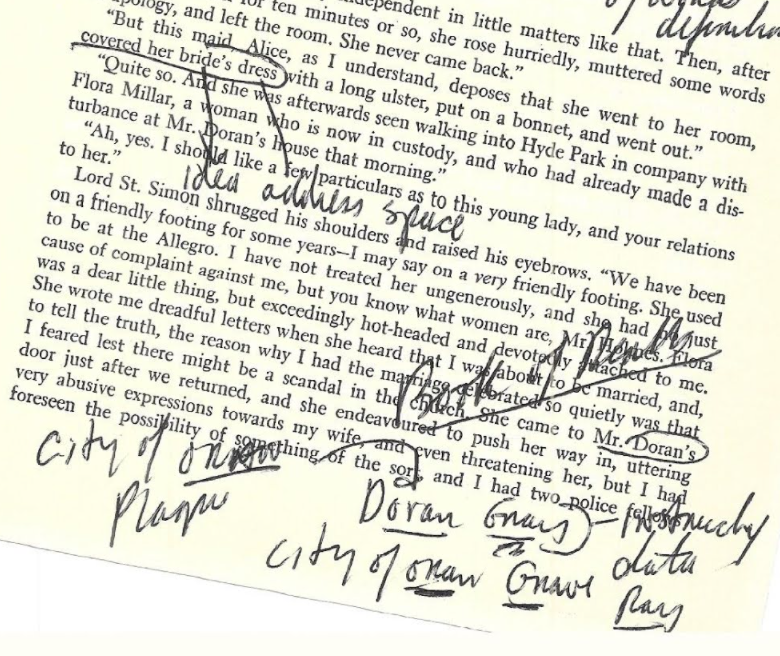 independent in little matters like that. Then, after
for ten minutes or so, she rose hurriedly, muttered some words
apology, and left the room. She never came back."
"But this maid, Alice, as I understand, deposes that she went to her room,
covered her bride's dress with a long ulster, put on a bonnet, and went out."
"Quite so. And she was afterwards seen walking into Hyde Park in company with
Flora Millar, a woman who is now in custody, and who had already made a dis-
turbance at Mr. Doran's house that morning."
"Ah, yes. I should like a few particulars as to this young lady, and your relations
to her."
idea address space
Lord St. Simon shrugged his shoulders and raised his eyebrows. "We have been
on a friendly footing for some years—I may say on a very friendly footing. She used
to be at the Allegro. I have not treated her ungenerously, and she had no just
cause of complaint against me, but you know what women are, Mr. Holmes. Flora
was a dear little thing, but exceedingly hot-headed and devotedly attached to me.
She wrote me dreadful letters when she heard that I was about to be married, and,
to tell the truth, the reason why I had the marriage celebrated so quietly was that
I feared lest there might be a scandal in the church. She came to Mr. Doran's
door just after we returned, and she endeavoured to push her way in, uttering
very abusive expressions towards my wife, and even threatening her, but I had
foreseen the possibility of something of the sort, and I had two police fellows
Book of
city of
Plaque
Doran
city of
data
Ray